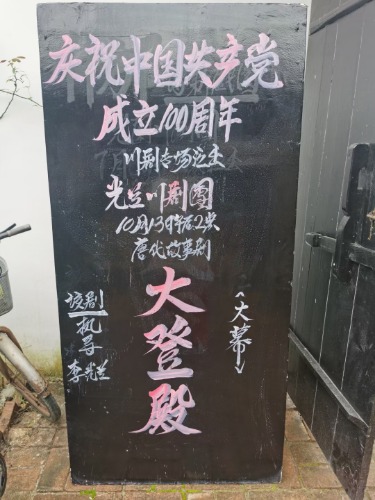 庆祝中国共产党
成立100周年
川剧专场演出
光兰川剧團
10月13日午后2点
唐代故事剧
大登殿
〈大幕〉
执导
李光兰